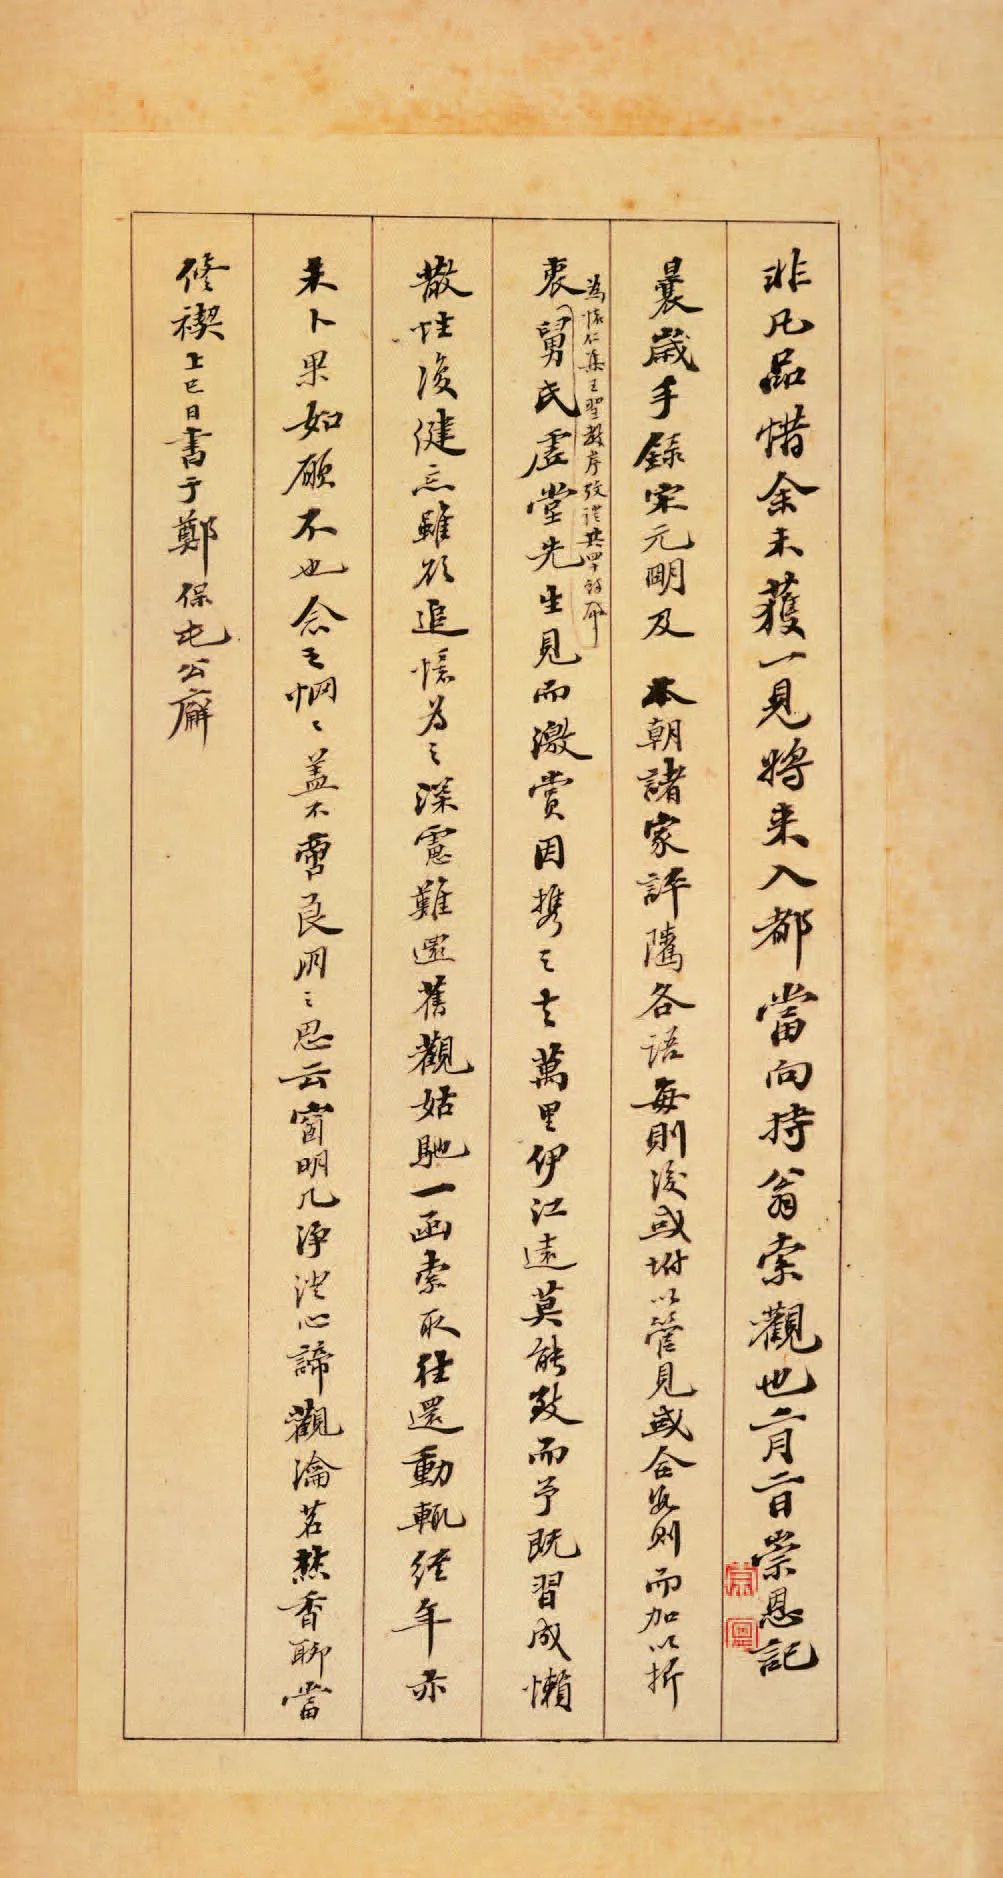 非凡品惜余未獲一見將來入都當向持翁索觀也二月二日崇恩記
曩歲手錄宋元明及 本朝諸家評隲各語每則後或坿以管見或合數則而加以折
衷
為懷仁集王聖教序攷證共四十餘冊
舅氏虛堂先生見而激賞因携之去萬里伊江遠莫能致而予既習成懶
散性復健忘雖欲追憶為之深慮難還舊觀姑馳一函索取往還動輒經年亦
未卜果如願不也念之惘〻蓋不啻良朋之思云窗明几淨澄心諦觀瀹茗爇香聊當
修禊上巳日書于鄭保屯公廨